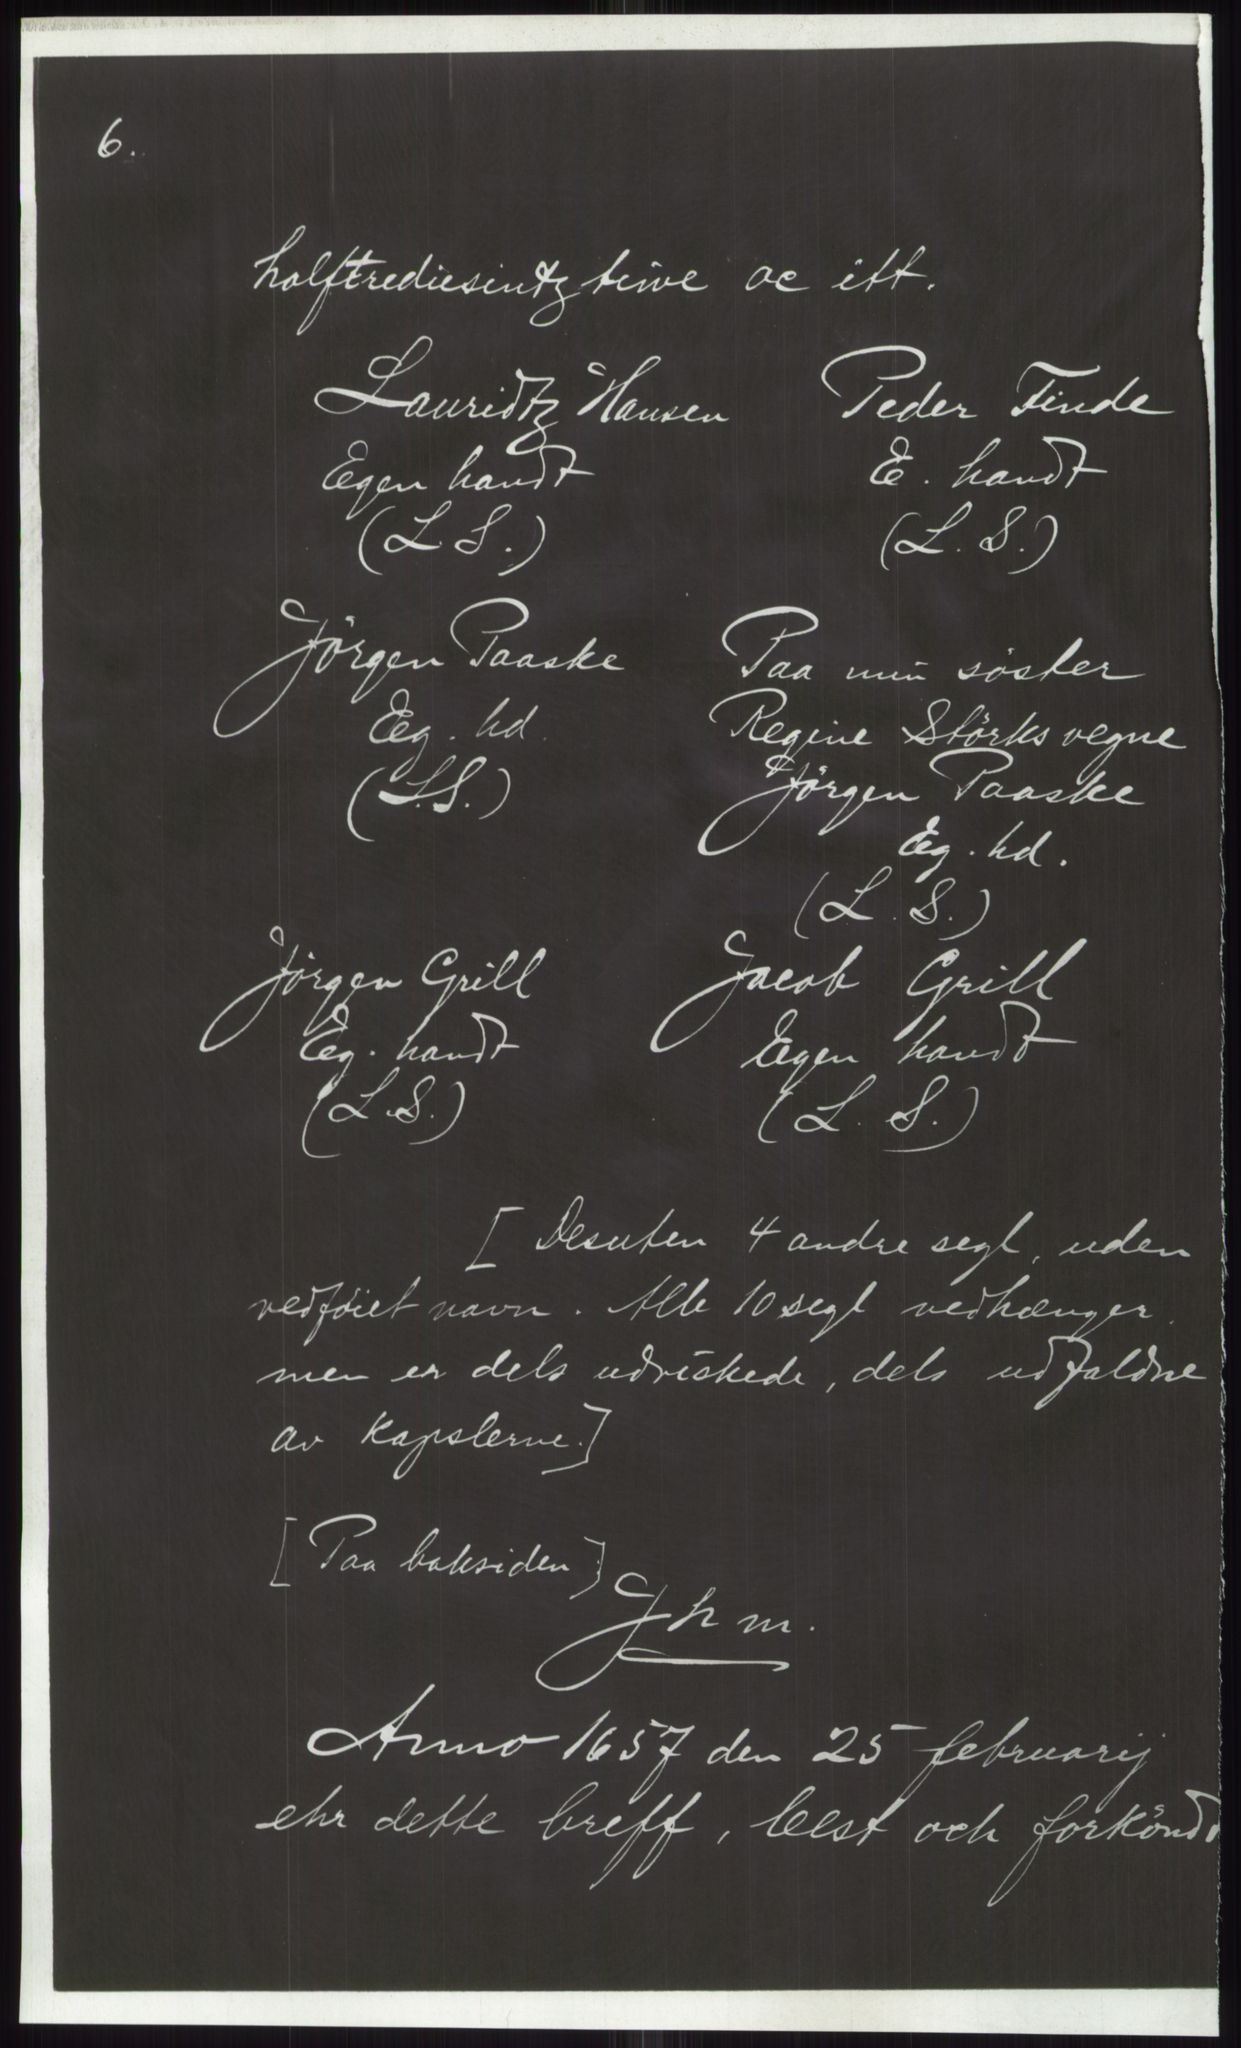 6.
halftrediesintz tiwe oc itt.
Lauridtz Hansen
Egen handt
(L.S.)
Peder Finde
E. handt
(L.S.)
Jörgen Paaske
Eg. hd.
(L.S.)
Paa min söster
Regine Störks vegne
Jörgen Paaske
Eg. hd.
(L.S.)
Jörgen Grill
Eg. handt
(L.S.)
Jacob Grill
Egen handt
(L.S.)
[Desuten 4 andre segl, uden
vedföiet navn. Alle 10 segl vedhænger,
men er dels udviskede, dels udfaldne
av kapslerne.]
[Paa baksiden]
J h m.
Anno 1657 den 25 februarij
ehr dette breff, lest och forkönd